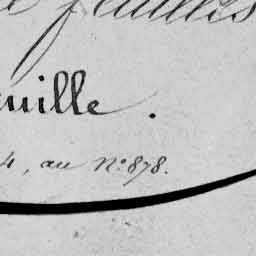 feuilles
uille.
4, au N° 878.